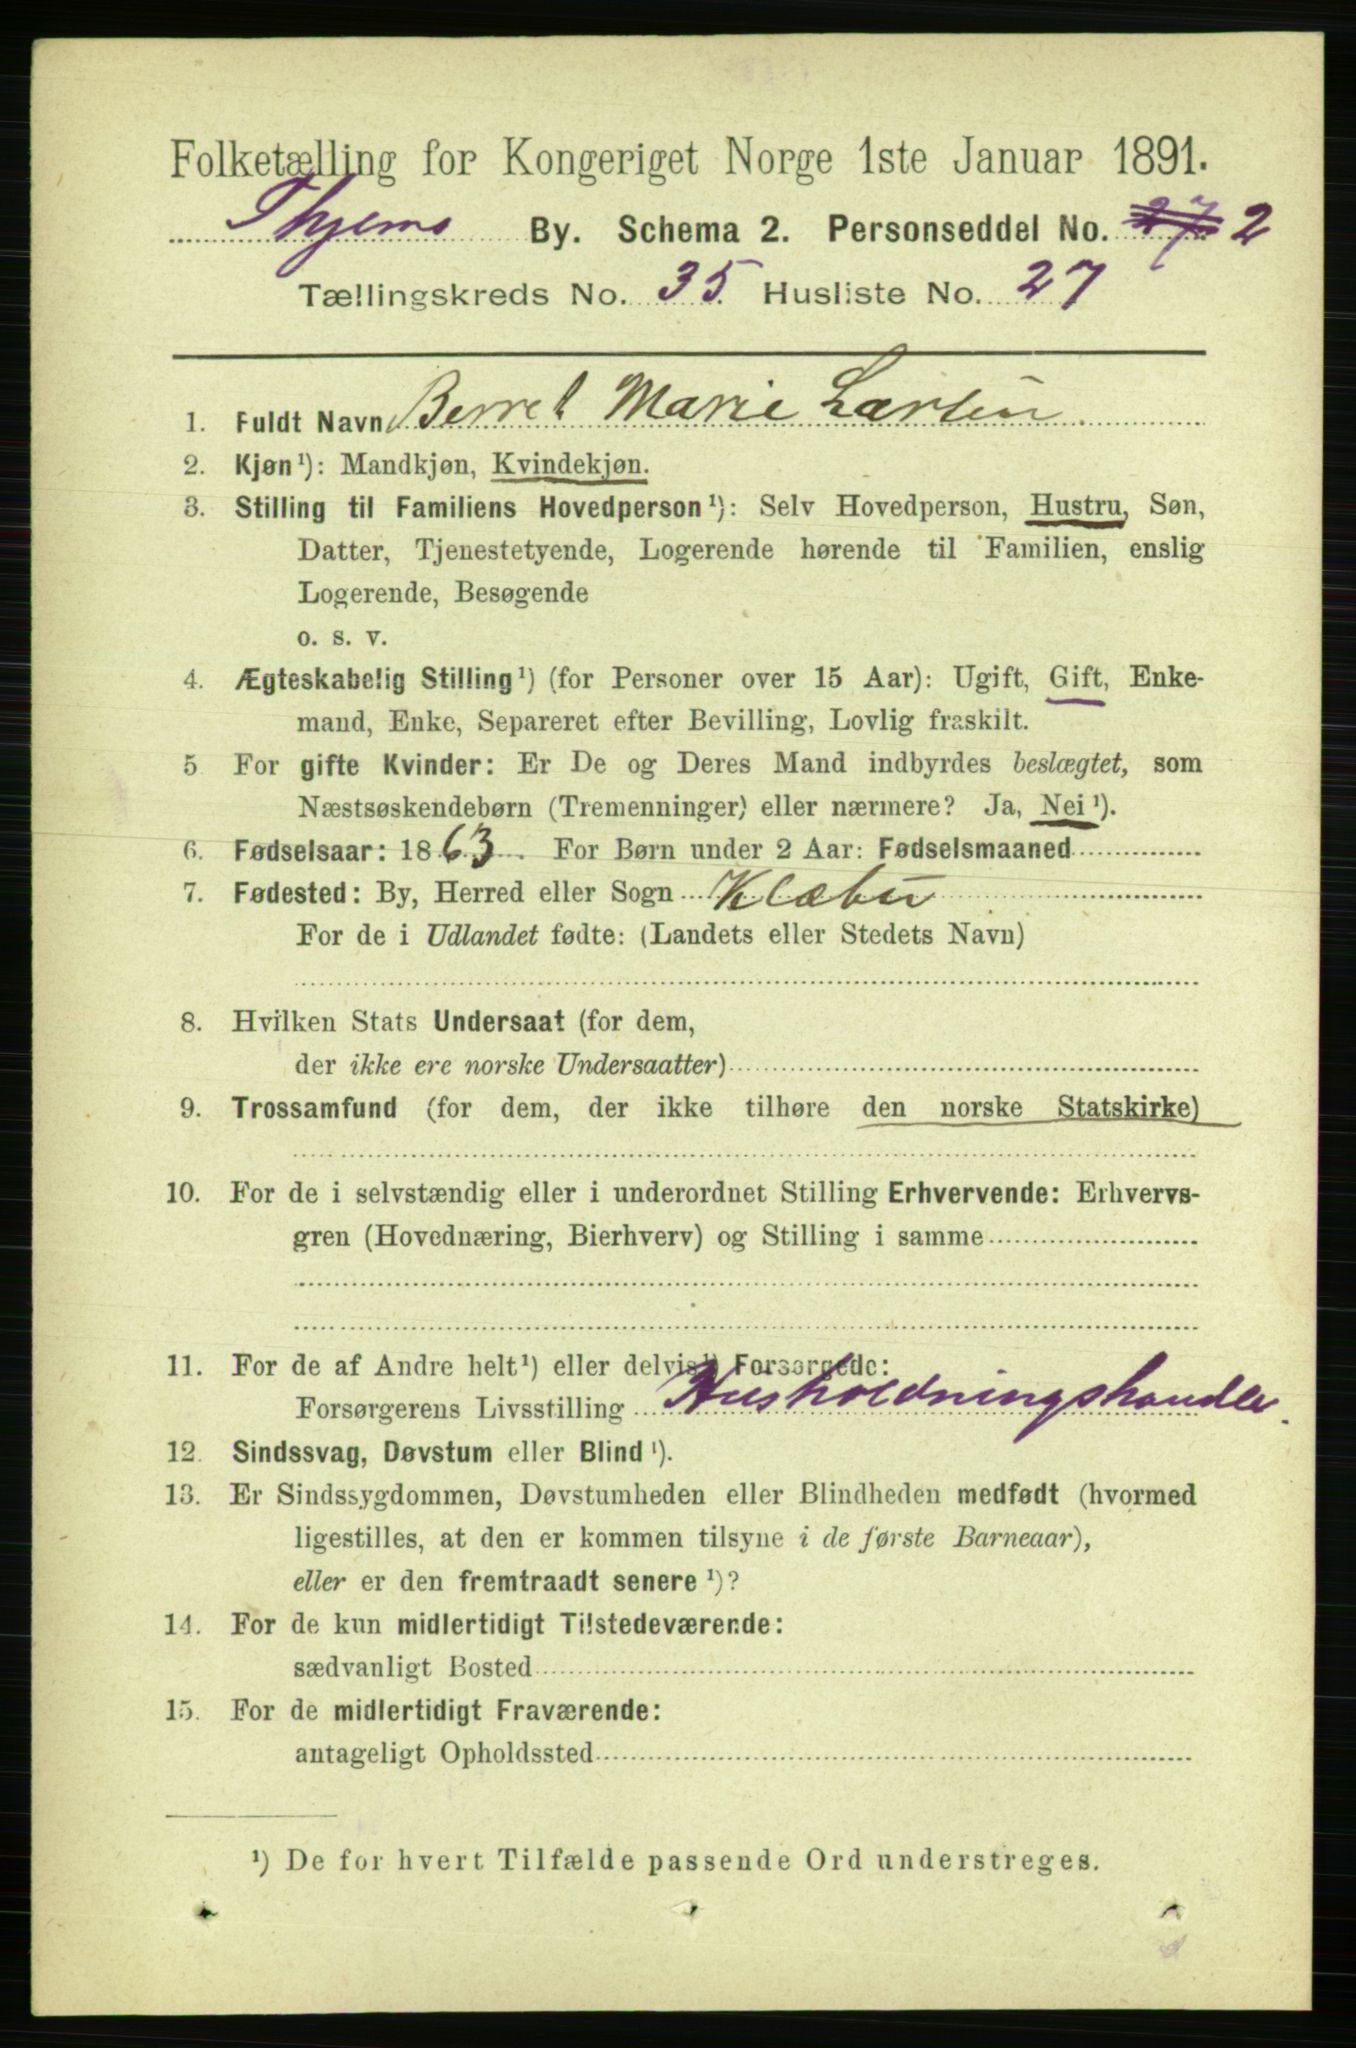 Folketælling for Kongeriget Norge 1ste Januar 1891.
Thjems By. Schema 2. Personseddel No. 27 2
Tællingskreds No. 35 Husliste No. 27
1. Fuldt Navn Berret Marie Larsen
2. Kjøn¹): Mandkjøn, Kvindekjøn.
3. Stilling til Familiens Hovedperson¹): Selv Hovedperson, Hustru, Søn,
Datter, Tjenestetyende, Logerende hørende til Familien, enslig
Logerende, Besøgende
o. s. v.
4. Ægteskabelig Stilling¹) (for Personer over 15 Aar): Ugift, Gift, Enke-
mand, Enke, Separeret efter Bevilling, Lovlig fraskilt.
5 For gifte Kvinder: Er De og Deres Mand indbyrdes beslægtet, som
Næstsøskendebørn (Tremenninger) eller nærmere? Ja, Nei¹).
6. Fødselsaar: 1863. For Børn under 2 Aar: Fødselsmaaned
7. Fødested: By, Herred eller Sogn Klæbu
For de i Udlandet fødte: (Landets eller Stedets Navn)
8. Hvilken Stats Undersaat (for dem,
der ikke ere norske Undersaatter)
9. Trossamfund (for dem, der ikke tilhøre den norske Statskirke)
10. For de i selvstændig eller i underordnet Stilling Erhvervende: Erhvervs-
gren (Hovednæring, Bierhverv) og Stilling i samme
11. For de af Andre helt¹) eller delvis¹) Forsørgede:
Forsørgerens Livsstilling Husholdningshandler.
12. Sindssvag, Døvstum eller Blind¹).
13. Er Sindssygdommen, Døvstumheden eller Blindheden medfødt (hvormed
ligestilles, at den er kommen tilsyne i de første Barneaar),
eller er den fremtraadt senere¹)?
14. For de kun midlertidigt Tilstedeværende:
sædvanligt Bosted
15. For de midlertidigt Fraværende:
antageligt Opholdssted
¹) De for hvert Tilfælde passende Ord understreges.